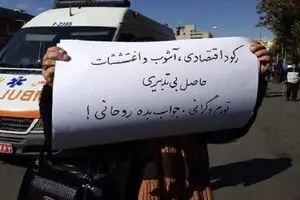 رکود اقتصادی، آشوب و اغتششات
حاصل بی تدبیری
تورم و گرانی، جواب بده روحانی!
AMBULAN